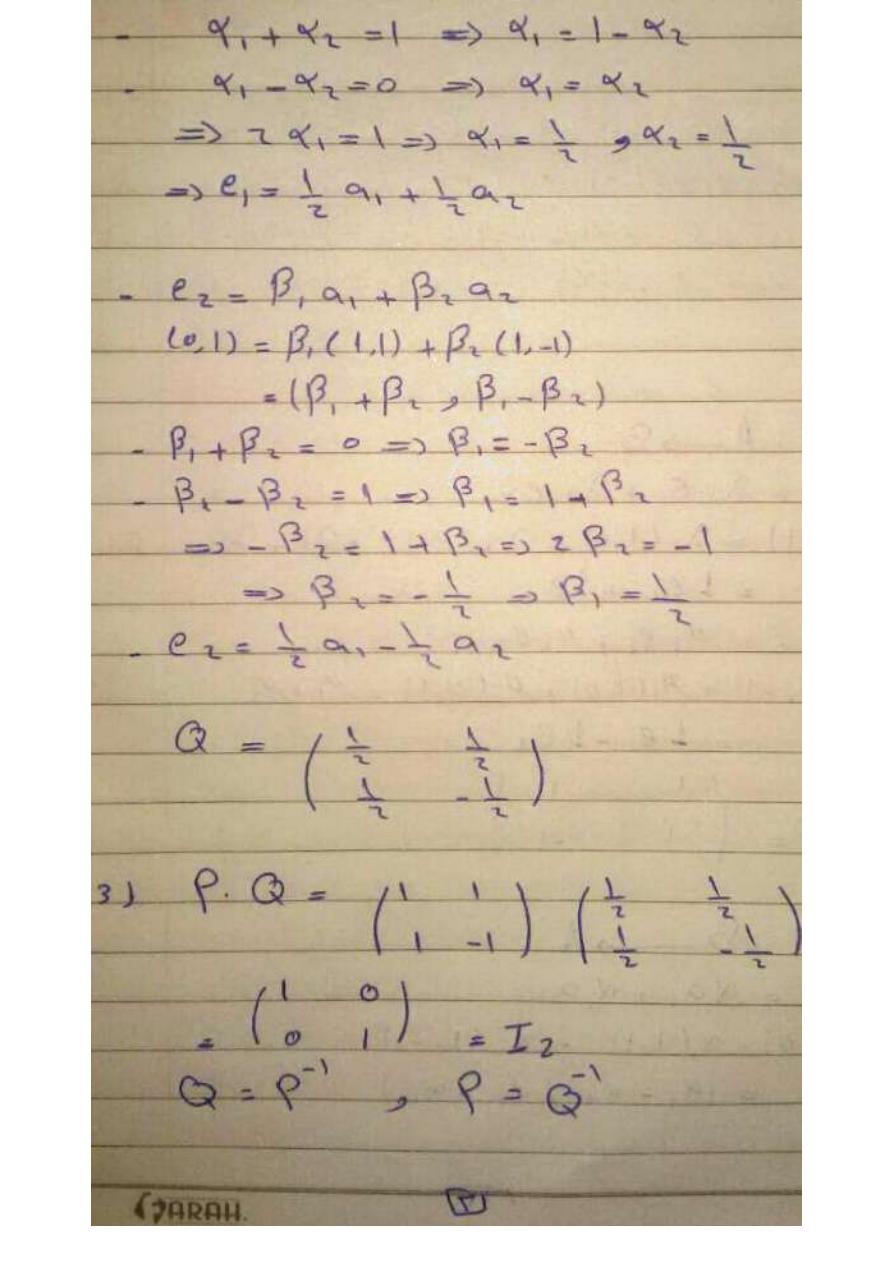 - α₁ + α₂ = 1 => α₁ = 1 - α₂
- α₁ - α₂ = 0 => α₁ = α₂
=> 2 α₁ = 1 => α₁ = 1/2 , α₂ = 1/2
=> e₁ = 1/2 a₁ + 1/2 a₂
- e₂ = β₁ a₁ + β₂ a₂
(0,1) = β₁ (1,1) + β₂ (1,-1)
= (β₁ + β₂ , β₁ - β₂)
- β₁ + β₂ = 0 => β₁ = -β₂
- β₁ - β₂ = 1 => β₁ = 1 + β₂
=> -β₂ = 1 + β₂ => 2 β₂ = -1
=> β₂ = -1/2 => β₁ = 1/2
- e₂ = 1/2 a₁ - 1/2 a₂
Q = ( 1/2 1/2
1/2 -1/2 )
3) P. Q = ( 1 1 ) ( 1/2 1/2 )
1 -1 1/2 -1/2
= ( 1 0
0 1 ) = I₂
Q = P⁻¹ , P = Q⁻¹